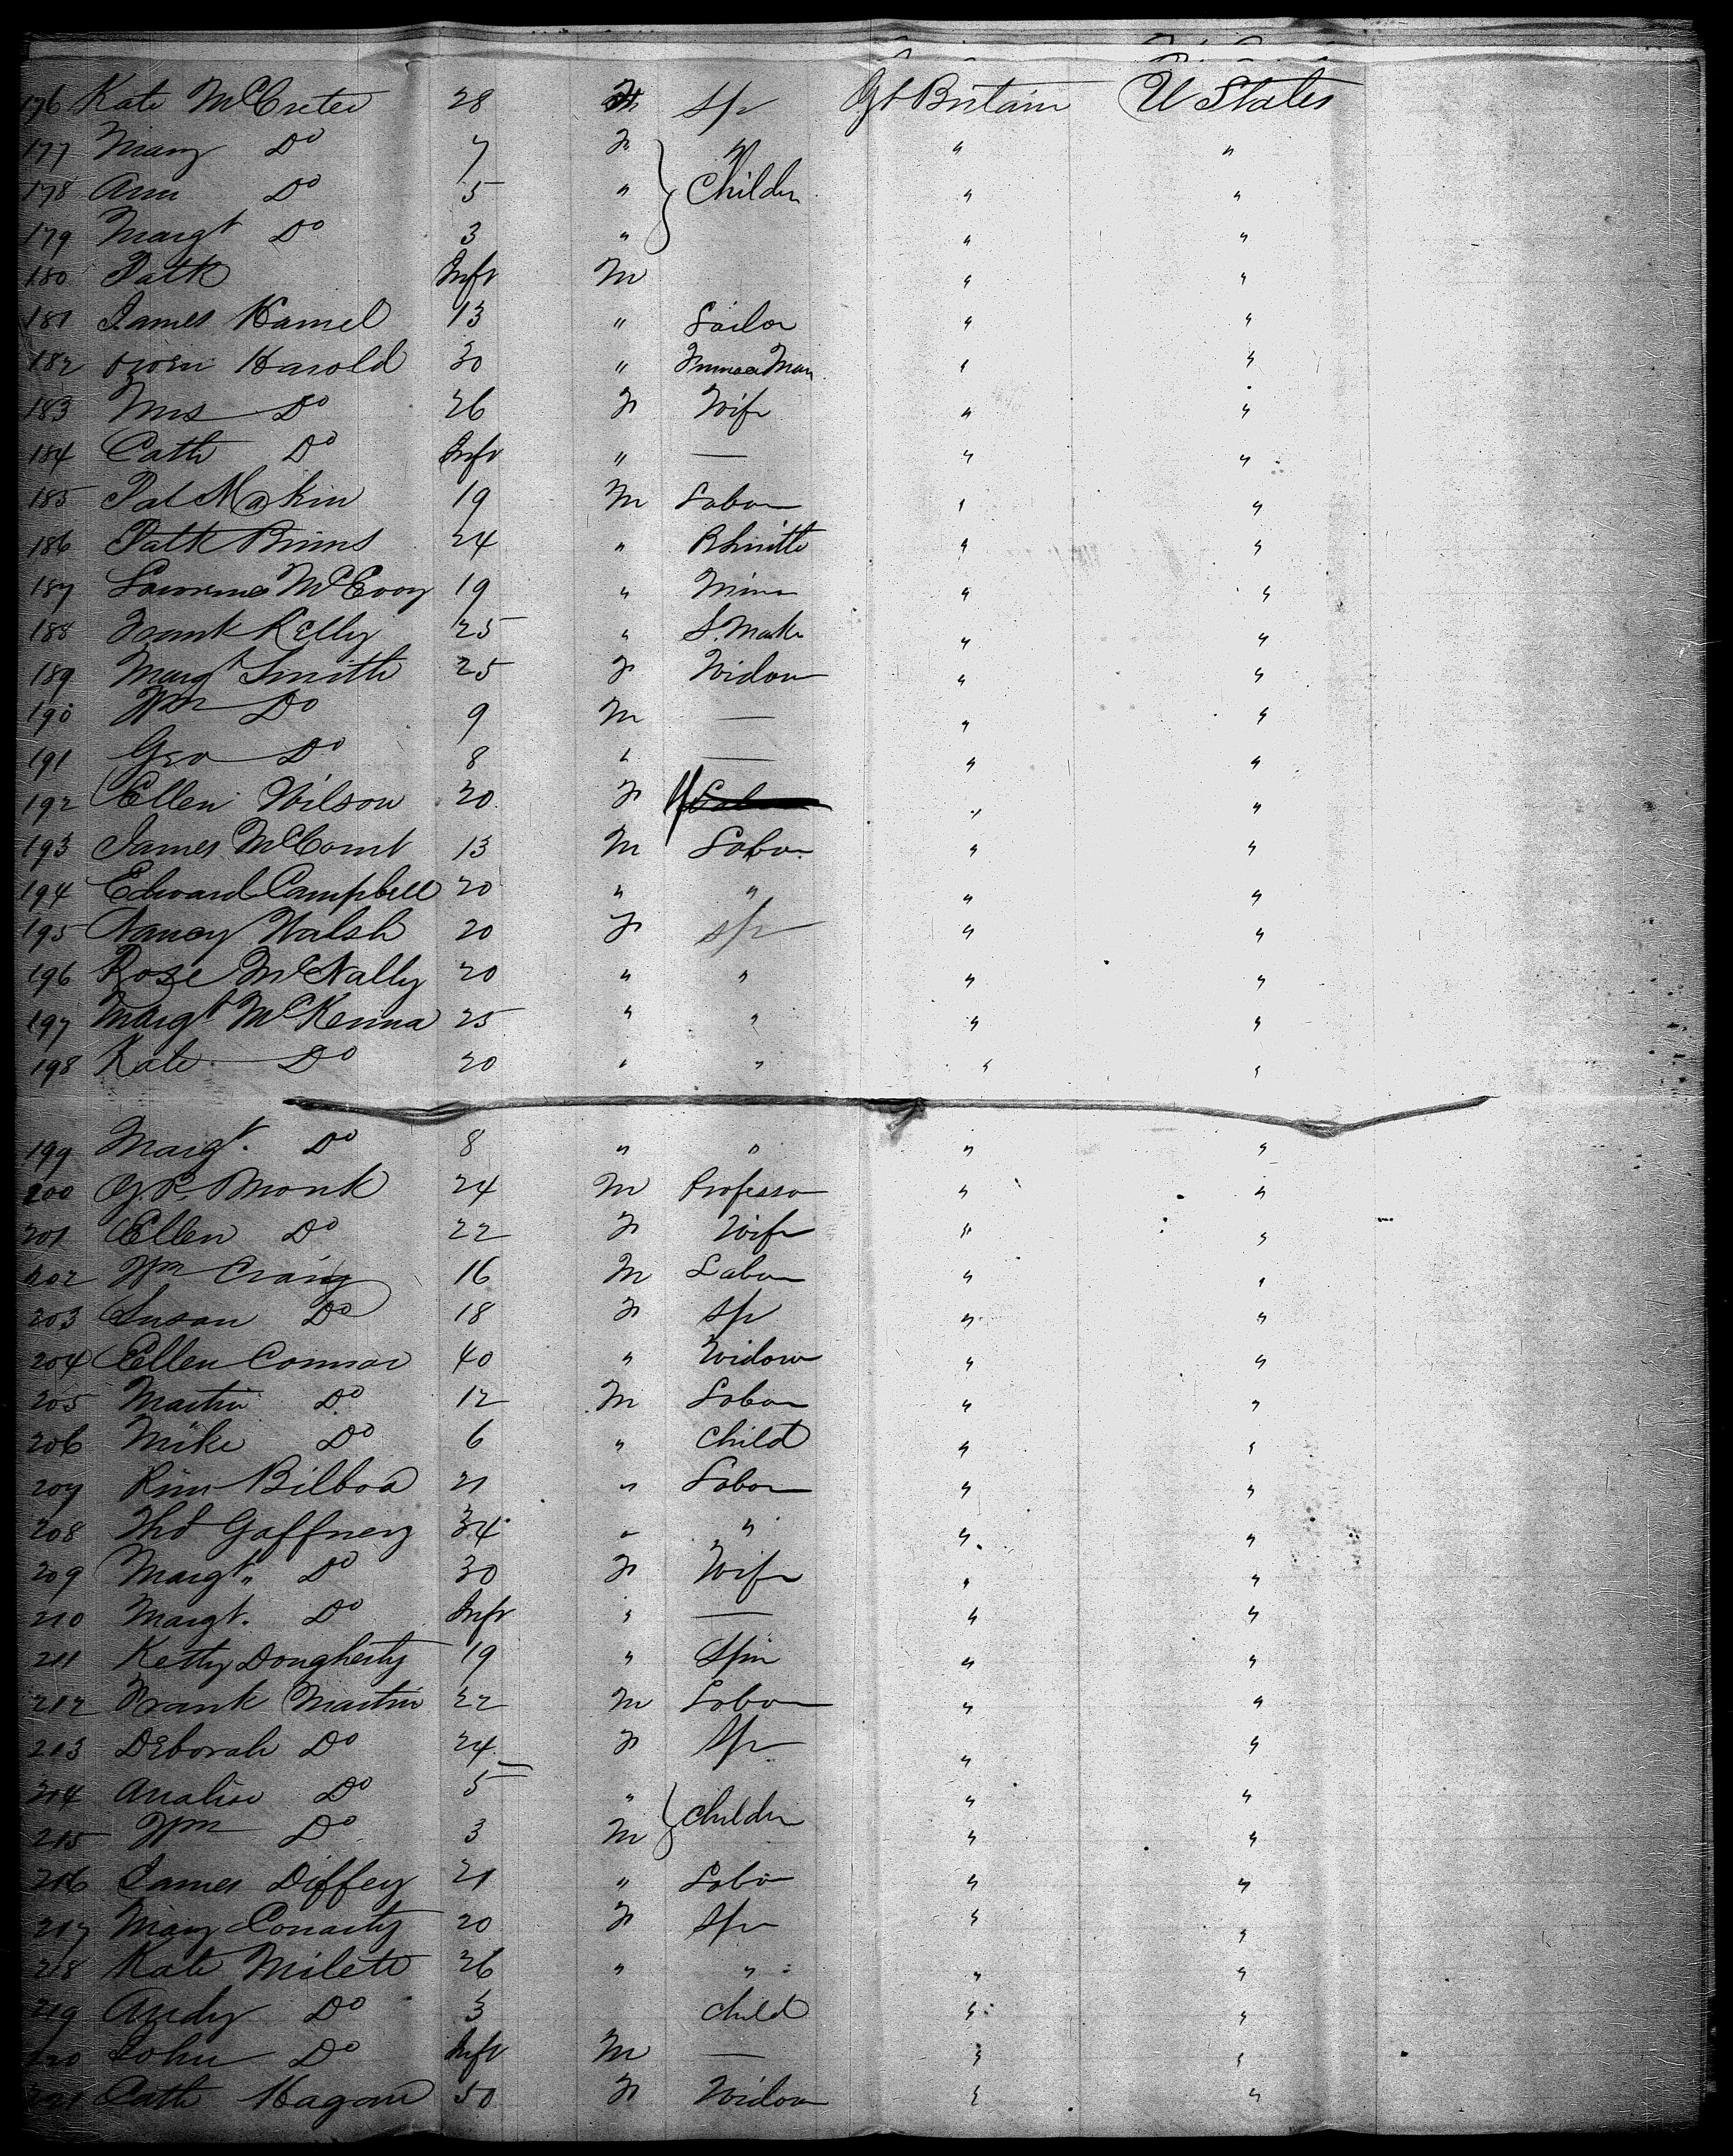 176 Kate McCreter 28 F Sp Gt Britain U States
177 Mary Do 7 F " " "
178 Ann Do 5 " Childn " "
179 Margt Do 3 " " "
180 Patk Inft M " "
181 James Hamel 13 " Sailor " "
182 Owen Harold 30 " Man " "
183 Mrs Do 26 F Wife " "
184 Cath Do Inft " — " "
185 Pat Makin 19 M Labor " "
186 Patk Binns 24 " BSmith " "
187 Lawrence McEvoy 19 " Miner " "
188 Frank Kelly 25 " S. Maker " "
189 Margt Smith 25 F Widow " "
190 Wm Do 9 M — " "
191 Geo Do 8 " — " "
192 Ellen Wilson 20 F " "
193 James McComt 13 M Labor " "
194 Edward Campbell 20 " " " "
195 Nancy Walsh 20 F Sp " "
196 Rose McNally 20 " " " "
197 Margt McKenna 25 " " " "
198 Kate Do 20 " " " "
199 Margt. Do 8 " " " "
200 G. R. Monk 24 M Professor " "
201 Ellen Do 22 F Wife " "
202 Wm Craig 16 M Labor " "
203 Susan Do 18 F Sp " "
204 Ellen Connor 40 " Widow " "
205 Martin Do 12 M Labor " "
206 Mike Do 6 " Child " "
207 Bilboa 21 " Labor " "
208 Thos Gaffney 34 " " " "
209 Margt. Do 30 F Wife " "
210 Margt. Do Inft " — " "
211 Ketty Dougherty 19 " Spin " "
212 Frank Martin 22 M Labor " "
213 Deborah Do 24 F Sp " "
214 Analise Do 5 " Childn " "
215 Wm Do 3 M " "
216 James Diffey 21 " Labor " "
217 Mary Conaty 20 F Sp " "
218 Kate Milete 26 " " " "
219 Andy Do 3 Child " "
220 John Do Inft M — " "
221 Cath Hagan 50 F Widow " "